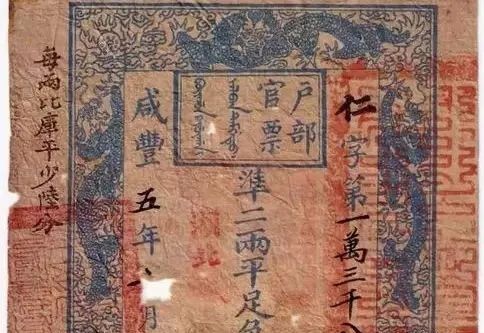 仁字第一萬三千
户部
官票
準二兩平足色
湖北
咸豐五年八月
每兩比庫平少陸分